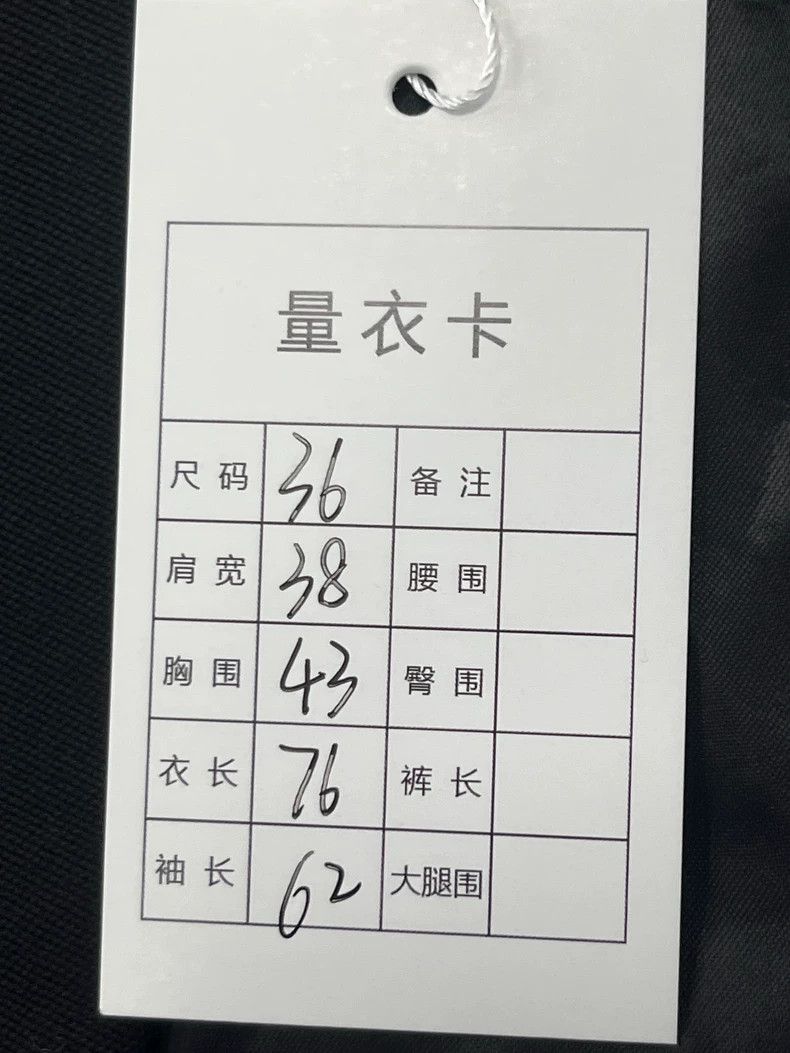 量衣卡
尺码 36 备注
肩宽 38 腰围
胸围 43 臀围
衣长 76 裤长
袖长 62 大腿围